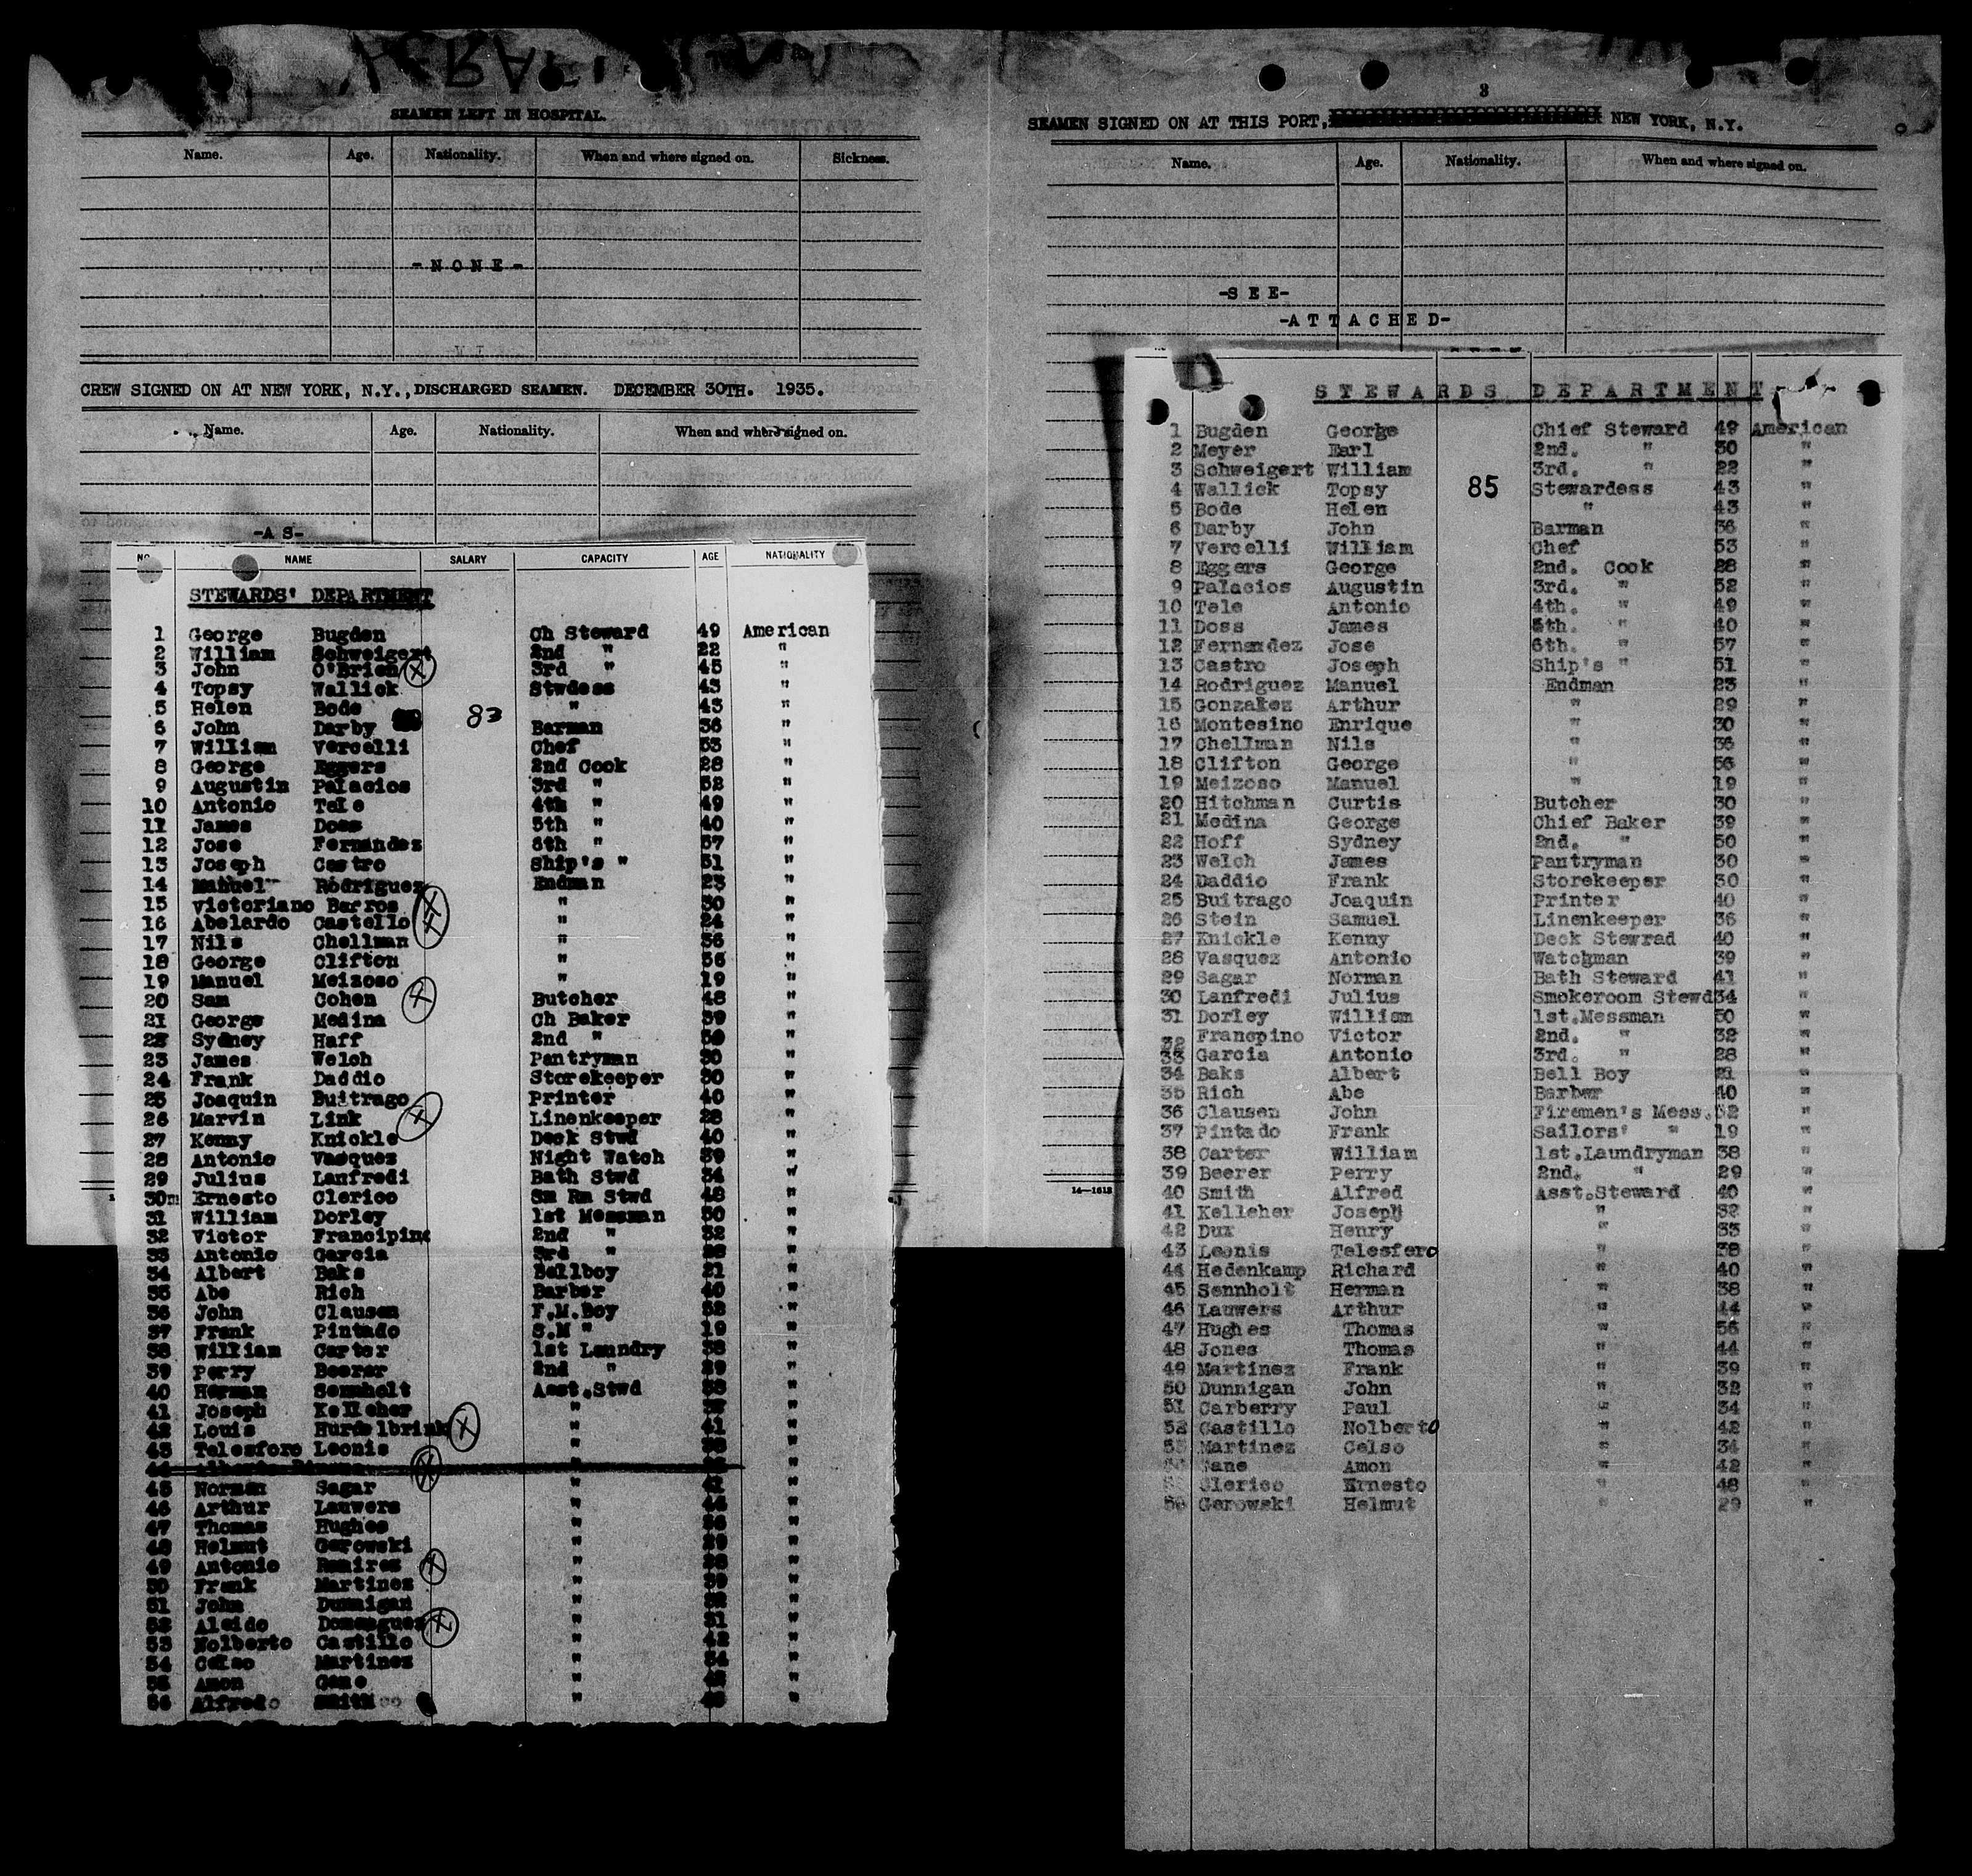 SEAMEN LEFT IN HOSPITAL.
Name. Age. Nationality. When and where signed on. Sickness.
-NONE-
CREW SIGNED ON AT NEW YORK, N.Y., DISCHARGED SEAMEN. DECEMBER 30TH. 1935.
Name. Age. Nationality. When and where signed on.
-A S-
NO. NAME SALARY CAPACITY AGE NATIONALITY
STEWARDS' DEPARTMENT
1 George Bugden Ch Steward 49 American
2 William Schweigert 2nd " 22 "
3 John O'Brien X 3rd " 45 "
4 Topsy Wallick Stwdess 43 "
5 Helen Bode 83 " 43 "
6 John Darby Barman 36 "
7 William Vercelli Chef 53 "
8 George Eggers 2nd Cook 28 "
9 Augustin Palacios 3rd " 52 "
10 Antonio Tele 4th " 49 "
11 James Doss 5th " 40 "
12 Jose Fernandez 6th " 57 "
13 Joseph Castro Ship's " 51 "
14 Manuel Rodriguez Endman 23 "
15 Victoriano Barros X " 30 "
16 Abelardo Castello X " 24 "
17 Nils Chellman " 36 "
18 George Clifton " 56 "
19 Manuel Meizoso " 19 "
20 Sam Cohen X Butcher 48 "
21 George Medina Ch Baker 39 "
22 Sydney Haff 2nd " 50 "
23 James Welch Pantryman 30 "
24 Frank Daddio Storekeeper 30 "
25 Joaquin Buitrago Printer 40 "
26 Marvin Link X Linenkeeper 28 "
27 Kenny Knickle Deck Stwd 40 "
28 Antonio Vasquez Night Watch 39 "
29 Julius Lanfredi Bath Stwd 34 "
30m Ernesto Clerico Sm Rm Stwd 48 "
31 William Dorley 1st Messman 50 "
32 Victor Francipine 2nd " 32 "
33 Antonio Garcia 3rd " 28 "
34 Albert Baks Bellboy 21 "
35 Abe Rich Barber 40 "
36 John Clausen F.M.Boy 52 "
37 Frank Pintado S.M " 19 "
38 William Carter 1st Laundry 38 "
39 Perry Beerer 2nd " 29 "
40 Herman Sennholt Asst.Stwd 38 "
41 Joseph Kelleher " "
42 Louis Hurdelbrink X " 41 "
43 Telesforo Leonis " 38 "
44 X " "
45 Norman Sagar " "
46 Arthur Lauwers " 44 "
47 Thomas Hughes " "
48 Helmut Gerowski " 29 "
49 Antonio Ramirez X " 28 "
50 Frank Martinez " 39 "
51 John Dunnigan " "
52 Alcido Domenguez X " 31 "
53 Nolberto Castillo " 42 "
54 Celso Martinez " 34 "
55 Amon Gane " 42 "
56 Alfredo Smith " "
3
SEAMEN SIGNED ON AT THIS PORT, NEW YORK, N.Y.
Name. Age. Nationality. When and where signed on.
-SEE-
-ATTACHED-
STEWARDS DEPARTMENT
1 Bugden George Chief Steward 49 American
2 Meyer Earl 2nd. " 30 "
3 Schweigert William 3rd. " 22 "
4 Wallick Topsy 85 Stewardess 43 "
5 Bode Helen " 43 "
6 Darby John Barman 36 "
7 Vercelli William Chef 53 "
8 Eggers George 2nd. Cook 28 "
9 Palacios Augustin 3rd. " 52 "
10 Tele Antonio 4th. " 49 "
11 Doss James 5th. " 40 "
12 Fernandez Jose 6th. " 57 "
13 Castro Joseph Ship's " 51 "
14 Rodriguez Manuel Endman 23 "
15 Gonzalez Arthur " 29 "
16 Montesino Enrique " 30 "
17 Chellman Nils " 36 "
18 Clifton George " 56 "
19 Meizoso Manuel " 19 "
20 Hitchman Curtis Butcher 30 "
21 Medina George Chief Baker 39 "
22 Hoff Sydney 2nd. " 50 "
23 Welch James Pantryman 30 "
24 Daddio Frank Storekeeper 30 "
25 Buitrago Joaquin Printer 40 "
26 Stein Samuel Linenkeeper 36 "
27 Knickle Kenny Deck Stewrad 40 "
28 Vasquez Antonio Watchman 39 "
29 Sagar Norman Bath Steward 41 "
30 Lanfredi Julius Smokeroom Stewd 34 "
31 Dorley William 1st.Messman 50 "
32 Francpino Victor 2nd. " 32 "
33 Garcia Antonio 3rd. " 28 "
34 Baks Albert Bell Boy 21 "
35 Rich Abe Barber 40 "
36 Clausen John Firemen's Mess. 52 "
37 Pintado Frank Sailors' " 19 "
38 Carter William 1st.Laundryman 38 "
39 Beerer Perry 2nd. " 29 "
40 Smith Alfred Asst.Steward 40 "
41 Kelleher Joseph " 32 "
42 Dux Henry " 33 "
43 Leonis Telesfero " 38 "
44 Hedenkamp Richard " 40 "
45 Sennholt Herman " 38 "
46 Lauwers Arthur " 44 "
47 Hughes Thomas " 56 "
48 Jones Thomas " 44 "
49 Martinez Frank " 39 "
50 Dunnigan John " 32 "
51 Carberry Paul " 34 "
52 Castillo Nolberto " 42 "
53 Martinez Celso " 34 "
Amon " 42 "
Clerico Ernesto " 48 "
56 Gerowski Helmut " 29 "
14—1613